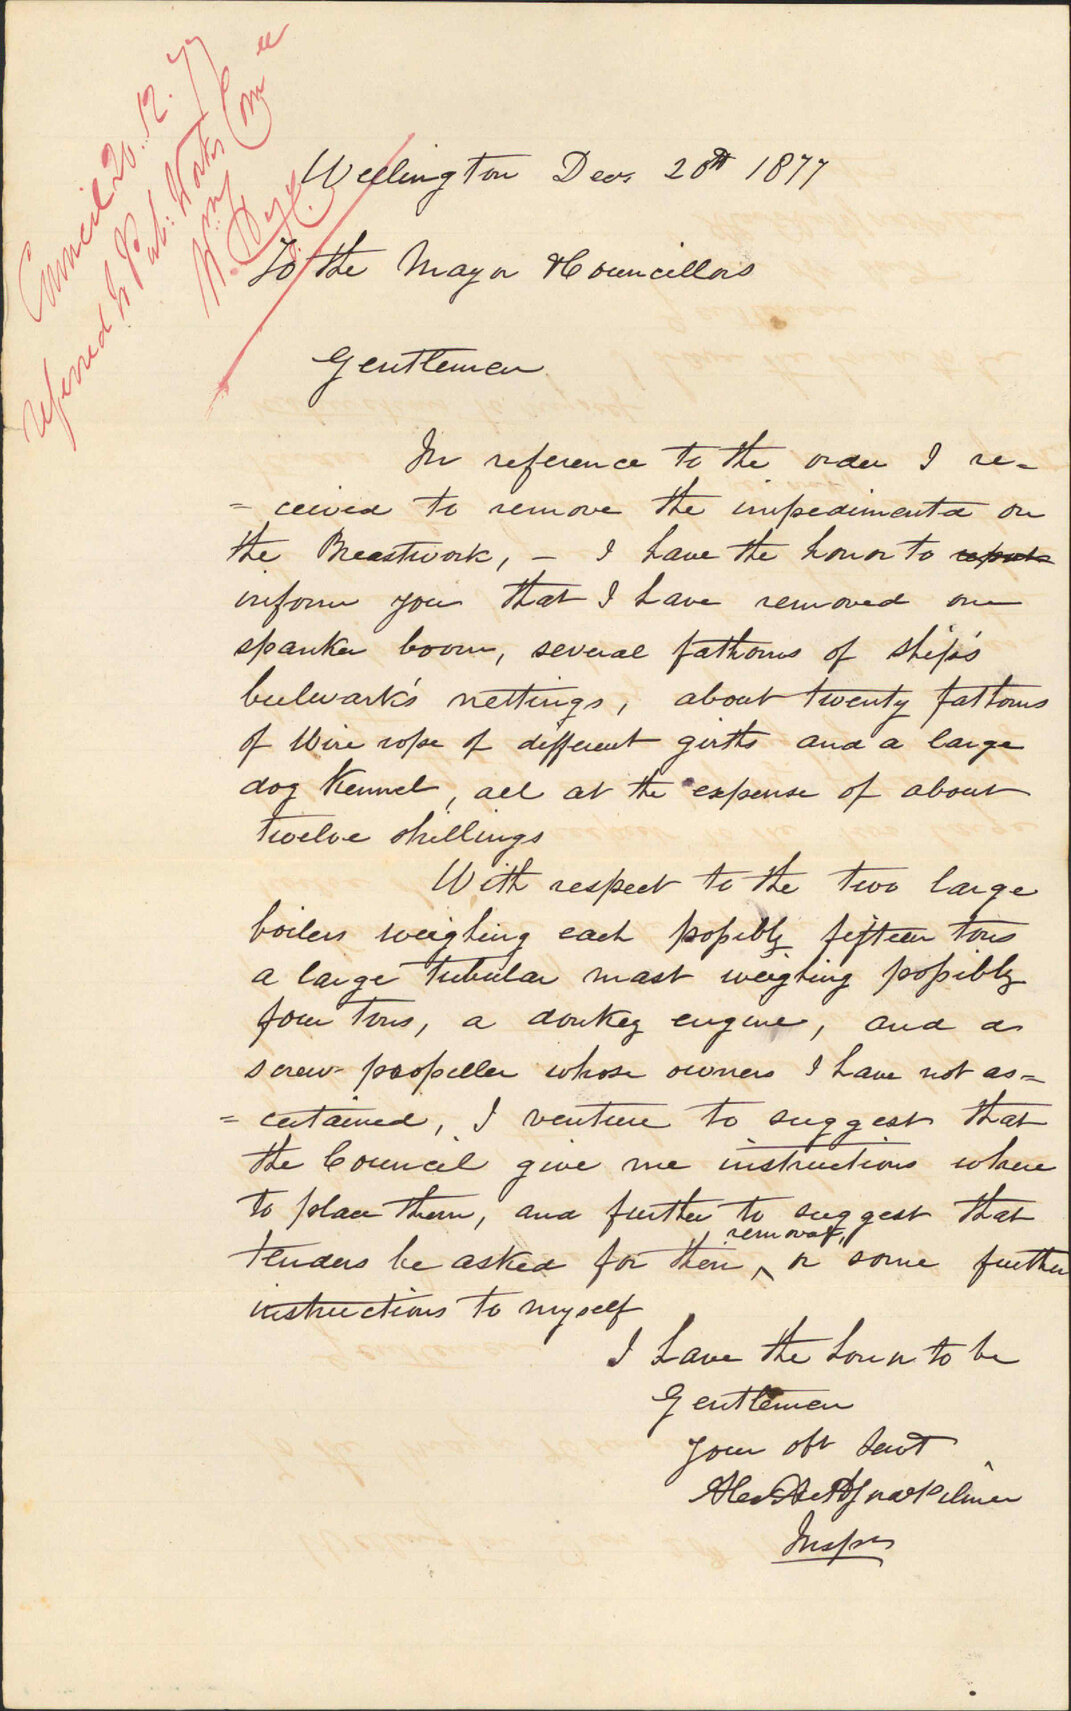 Council 20.12.77
referred to Pub: Works Comee
Wm
Wellington Decr 20th 1877
To the Mayor & Councillors
Gentlemen
In reference to the order I re=
= ceived to remove the impedimenta on
the Breastwork, – I have the honor to report
inform you that I have removed one
spanker boom, several fathoms of ship's
bulwark's nettings, about twenty fathoms
of Wire rope of different girths and a large
dog Kennel, all at the expense of about
twelve shillings
With respect to the two large
boilers weighing each possibly fifteen tons
a large tubular mast weighing possibly
four tons, a donkey engine, and a
screw propeller whose owners I have not as=
= certained, I venture to suggest that
the Council give me instructions where
to place them, and further to suggest that
removal,
tenders be asked for their ^ or some further
instructions to myself
I have the honor to be
Gentlemen
Your obt Servt
Inspr